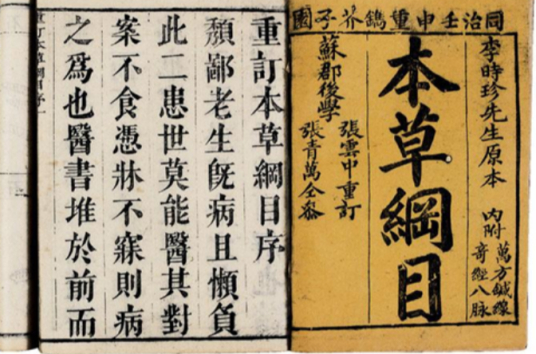 同治壬申重鐫芥子園
李時珍先生原本 內附
萬方鍼線
奇經八脉
本草綱目
蘇郡後學
張雲中重訂
張青萬仝參
重訂本草綱目序
頽鄙老生旣病且懶負
此二患世莫能醫其對
案不食憑牀不寐則病
之爲也醫書堆於前而
重訂本草綱目序 一